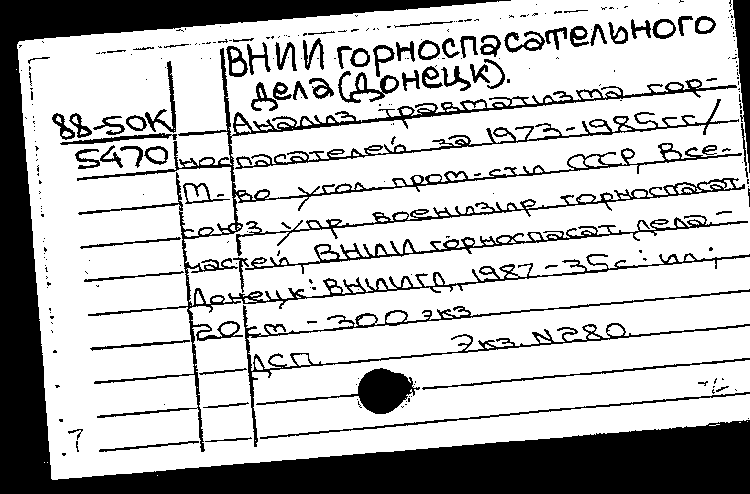 ВНИИ горноспасательного
дела (Донецк).
88-50К
5470
Анализ травматизма гор-
носпасателей за 1973-1985гг/
М-во угол. пром-сти СССР, Все-
союз. упр. военизир. горноспасат.
частей, ВНИИ горноспасат. дела.-
Донецк: ВНИИГД, 1987.-35с.: ил.;
20см. - 300 экз.
ДСП. Экз. N280.
7